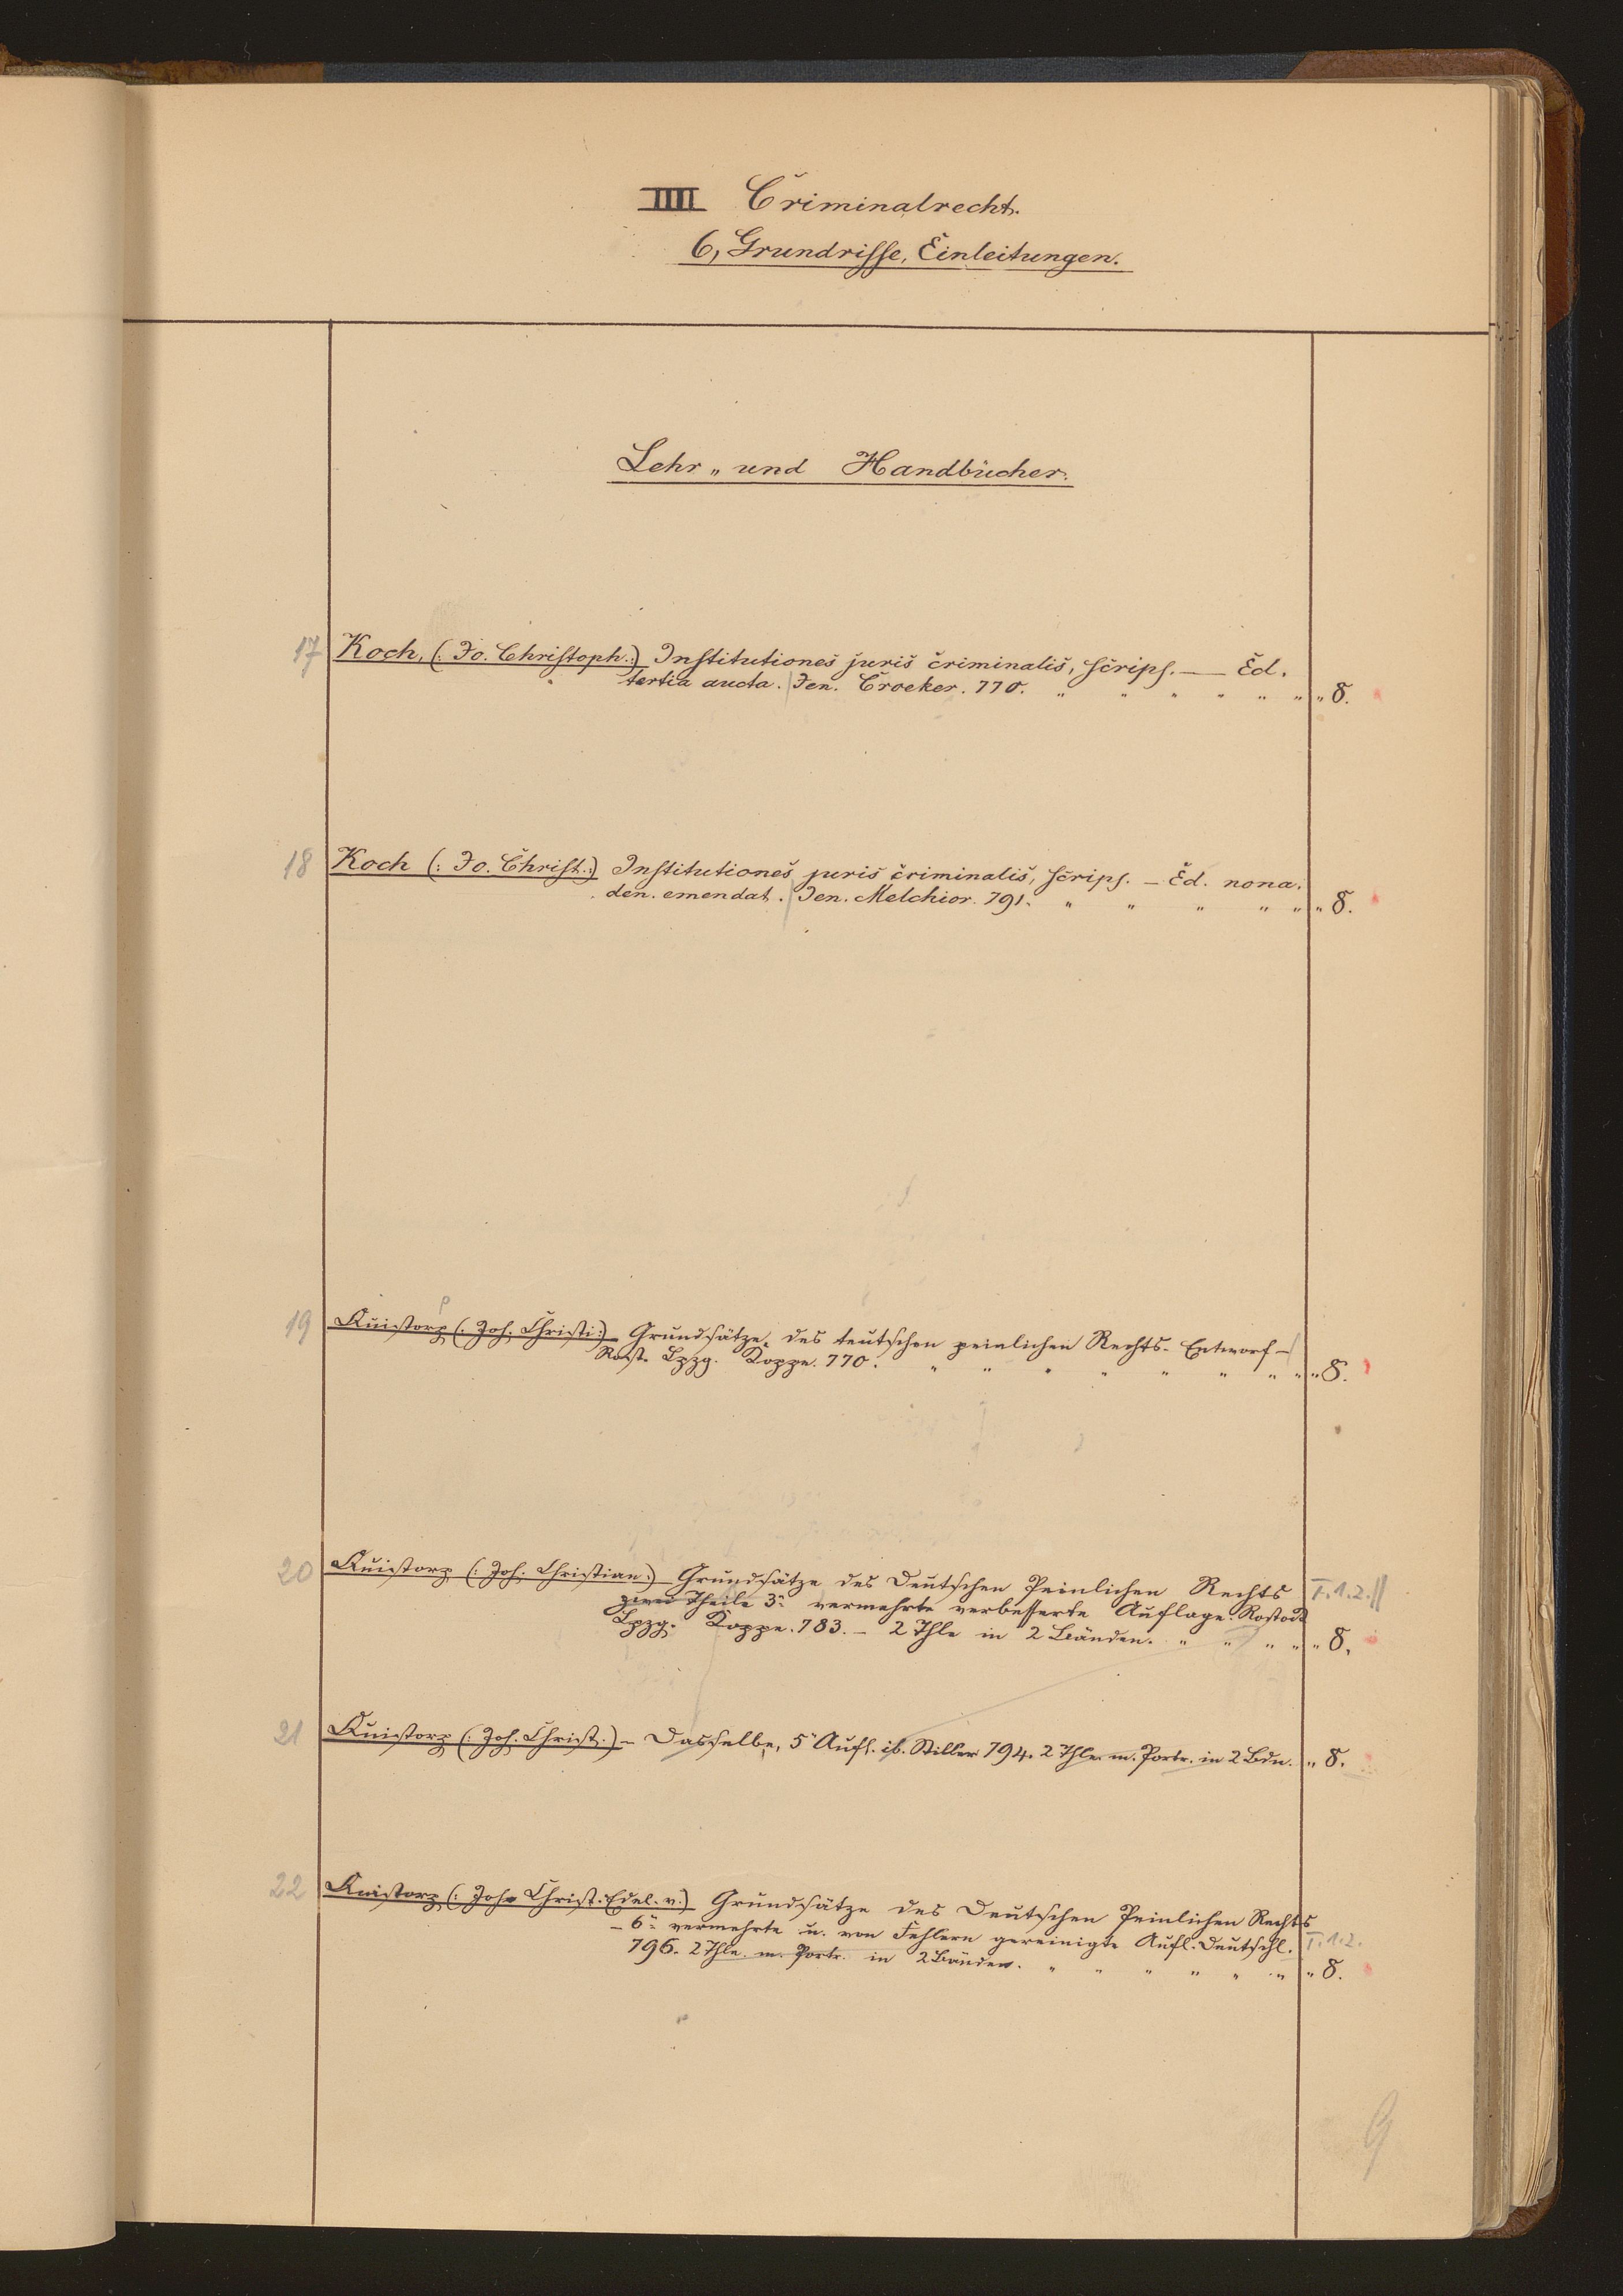 IIII Criminalrecht.
6, Grundrisse, Einleitungen.
Lehr „ und Handbücher.
17 Koch, (: Jo. Christoph.:) Institutiones juris criminalis, scrips. — Ed.
tertia aucta. Jen. Croeker. 770. „ „ „ „ „ „ „ 8.
18 Koch (: Jo. Christ.:) Institutiones juris criminalis, scrips. — Ed. nona.
den. emendat. Jen. Melchior. 791. „ „ „ „ „ „ 8.
19 Quistorp (: Joh. Christi:) Grundsätze des teutschen peinlichen Rechts. Entworf —
Rost. Lpzg. Koppe. 770. „ „ „ „ „ „ „ „ „ 8.
20 Quistorp (: Joh. Christian:) Grundsätze des Deutschen Peinlichen Rechts T. 1. 2. //
zwei Theile 3" vermehrte verbesserte Auflage. Rostock
Lpzg. Koppe. 783. — 2 Thle in 2 Bänden. „ „ „ „ „ 8.
21 Quistorp (: Joh. Christ.:) — Dasselbe, 5" Aufl. ib. Stiller 794. 2 Thle. m. Portr. in 2 Bdn. „ 8.
22 Quistorp (: Joh Christ. Edel. v.:) Grundsätze des Deutschen Peinlichen Rechts
— 6" vermehrte u. von Fehlern gereinigte Aufl. Deutschl. T. 1. 2.
796. 2 Thle. m. Portr. in 2 Bänden. „ „ „ „ „ „ „ 8.
9